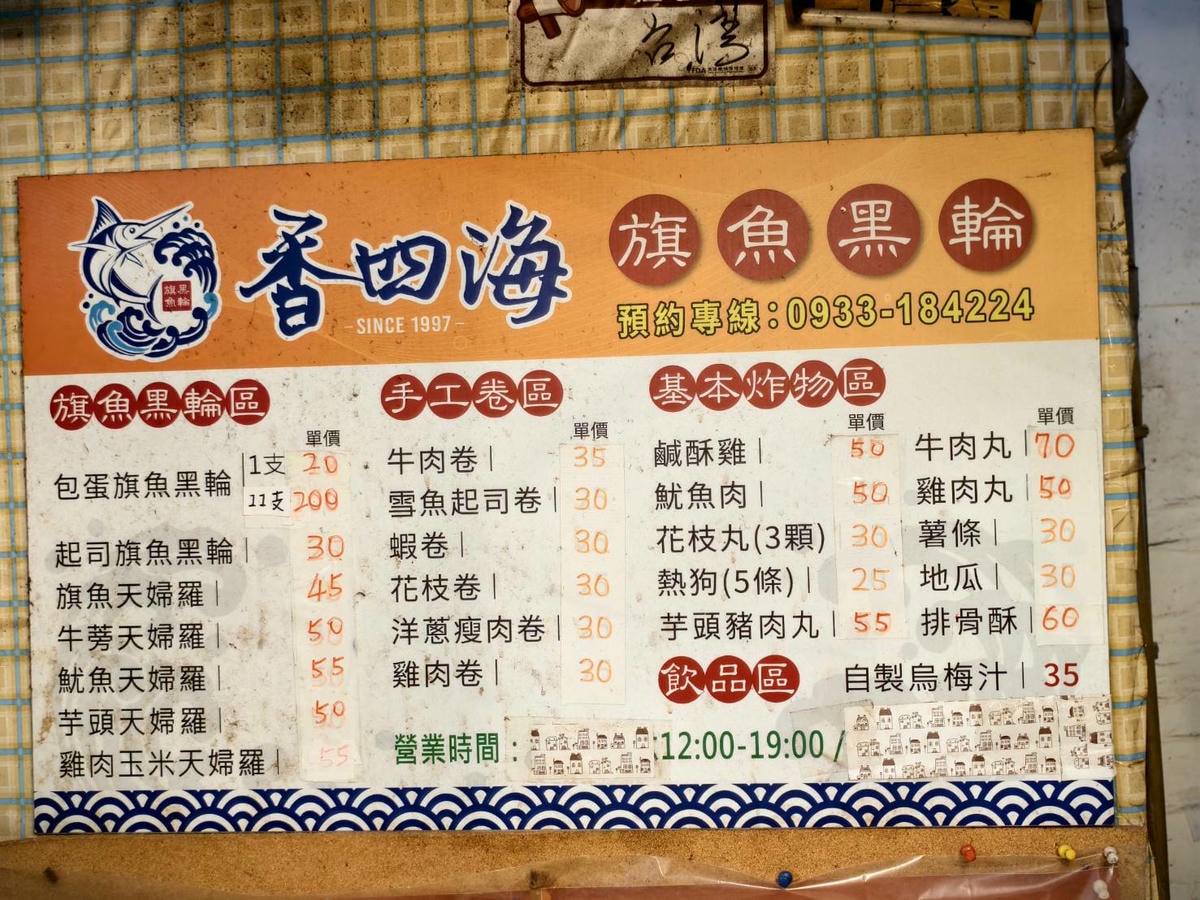 台灣
香四海
SINCE 1997
旗魚黑輪
旗魚黑輪
預約專線:0933-184224
旗魚黑輪區
單價
包蛋旗魚黑輪 1支 20
11支 200
起司旗魚黑輪 30
旗魚天婦羅 45
牛蒡天婦羅 50
魷魚天婦羅 55
芋頭天婦羅 50
雞肉玉米天婦羅 55
手工卷區
單價
牛肉卷 35
雪魚起司卷 30
蝦卷 30
花枝卷 30
洋蔥瘦肉卷 30
雞肉卷 30
基本炸物區
單價
鹹酥雞 50
魷魚肉 50
花枝丸(3顆) 30
熱狗(5條) 25
芋頭豬肉丸 55
單價
牛肉丸 70
雞肉丸 50
薯條 30
地瓜 30
排骨酥 60
飲品區
自製烏梅汁 35
營業時間: 12:00-19:00 /